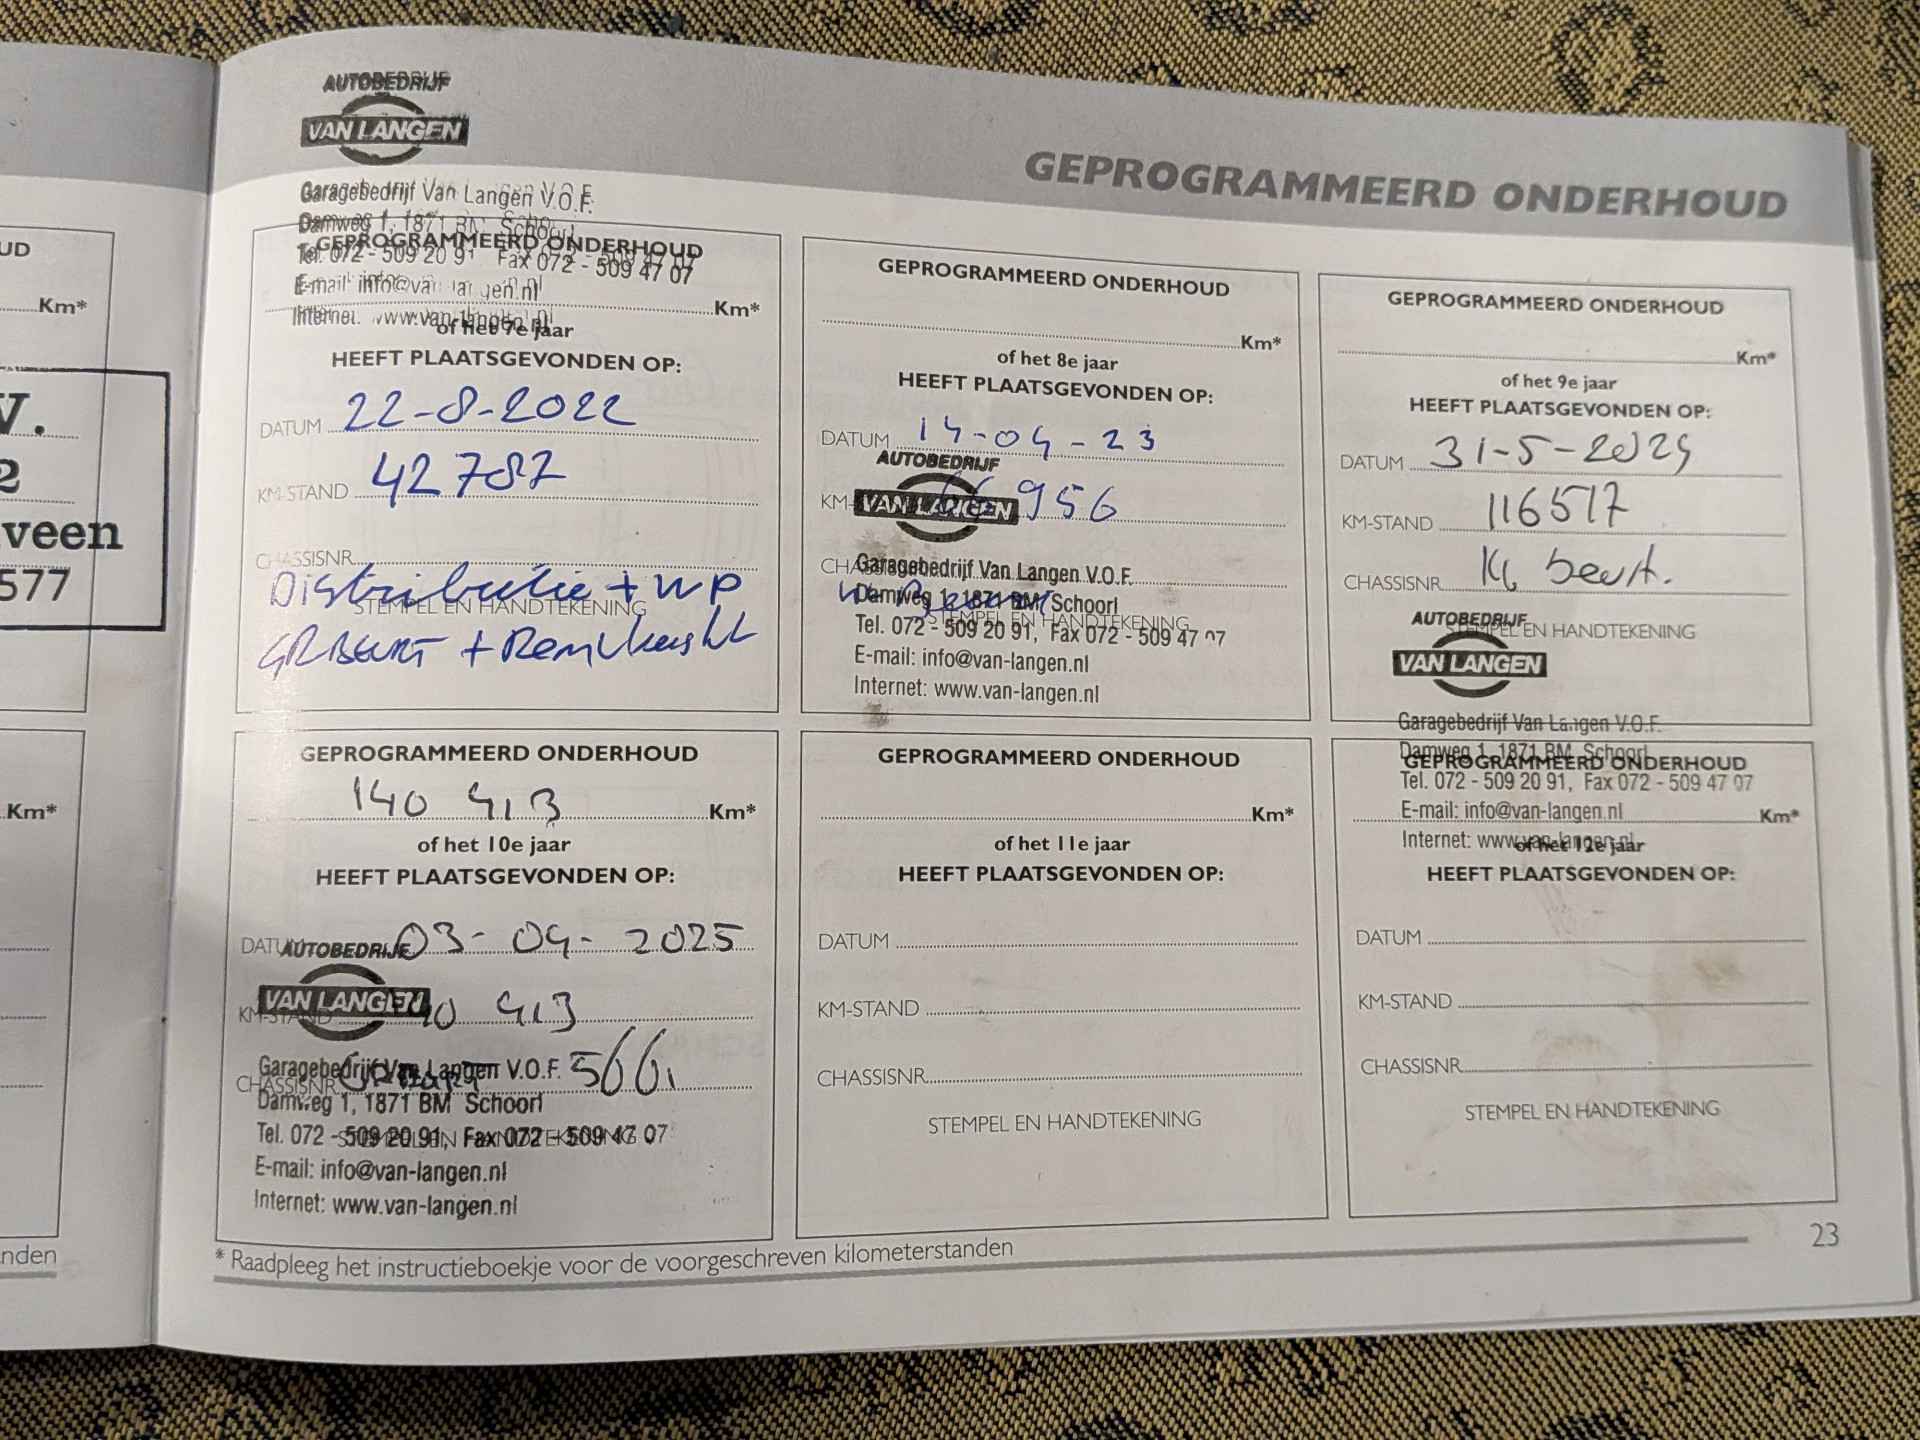 UD
Km*
V.
2
veen
577
Km*
nden
GEPROGRAMMEERD ONDERHOUD
AUTOBEDRIJF
VAN LANGEN
Garagebedrijf Van Langen V.O.F.
Damweg 1, 1871 BM Schoorl
GEPROGRAMMEERD ONDERHOUD
Tel. 072 - 509 20 91 Fax 072 - 509 47 07
E-mail: info@van-langen.nl
Km*
Internet: www.van-langen.nl
of het 7e jaar
HEEFT PLAATSGEVONDEN OP:
DATUM 22-8-2022
KM-STAND 42787
CHASSISNR
Distributie + WP
STEMPEL EN HANDTEKENING
GRBEURT + Remvloeistof
GEPROGRAMMEERD ONDERHOUD
Km*
of het 8e jaar
HEEFT PLAATSGEVONDEN OP:
DATUM 14-04-23
AUTOBEDRIJF
VAN LANGEN
KM- 956
Garagebedrijf Van Langen V.O.F.
Damweg 1, 1871 BM Schoorl
STEMPEL EN HANDTEKENING
Tel. 072 - 509 20 91, Fax 072 - 509 47 07
E-mail: info@van-langen.nl
Internet: www.van-langen.nl
GEPROGRAMMEERD ONDERHOUD
Km*
of het 9e jaar
HEEFT PLAATSGEVONDEN OP:
DATUM 31-5-2024
KM-STAND 116517
CHASSISNR beurt.
AUTOBEDRIJF
STEMPEL EN HANDTEKENING
VAN LANGEN
Garagebedrijf Van Langen V.O.F.
Damweg 1, 1871 BM Schoorl
GEPROGRAMMEERD ONDERHOUD
140 413 Km*
of het 10e jaar
HEEFT PLAATSGEVONDEN OP:
DATUM 03-04-2025
AUTOBEDRIJF
VAN LANGEN
KM-STAND 140 413
Garagebedrijf Van Langen V.O.F.
CHASSISNR 566
Damweg 1, 1871 BM Schoorl
Tel. 072 - 509 20 91, Fax 072 - 509 47 07
STEMPEL EN HANDTEKENING
E-mail: info@van-langen.nl
Internet: www.van-langen.nl
GEPROGRAMMEERD ONDERHOUD
Km*
of het 11e jaar
HEEFT PLAATSGEVONDEN OP:
DATUM
KM-STAND
CHASSISNR
STEMPEL EN HANDTEKENING
GEPROGRAMMEERD ONDERHOUD
Tel. 072 - 509 20 91, Fax 072 - 509 47 07
E-mail: info@van-langen.nl
Km*
Internet: www.van-langen.nl
of het 12e jaar
HEEFT PLAATSGEVONDEN OP:
DATUM
KM-STAND
CHASSISNR
STEMPEL EN HANDTEKENING
* Raadpleeg het instructieboekje voor de voorgeschreven kilometerstanden
23